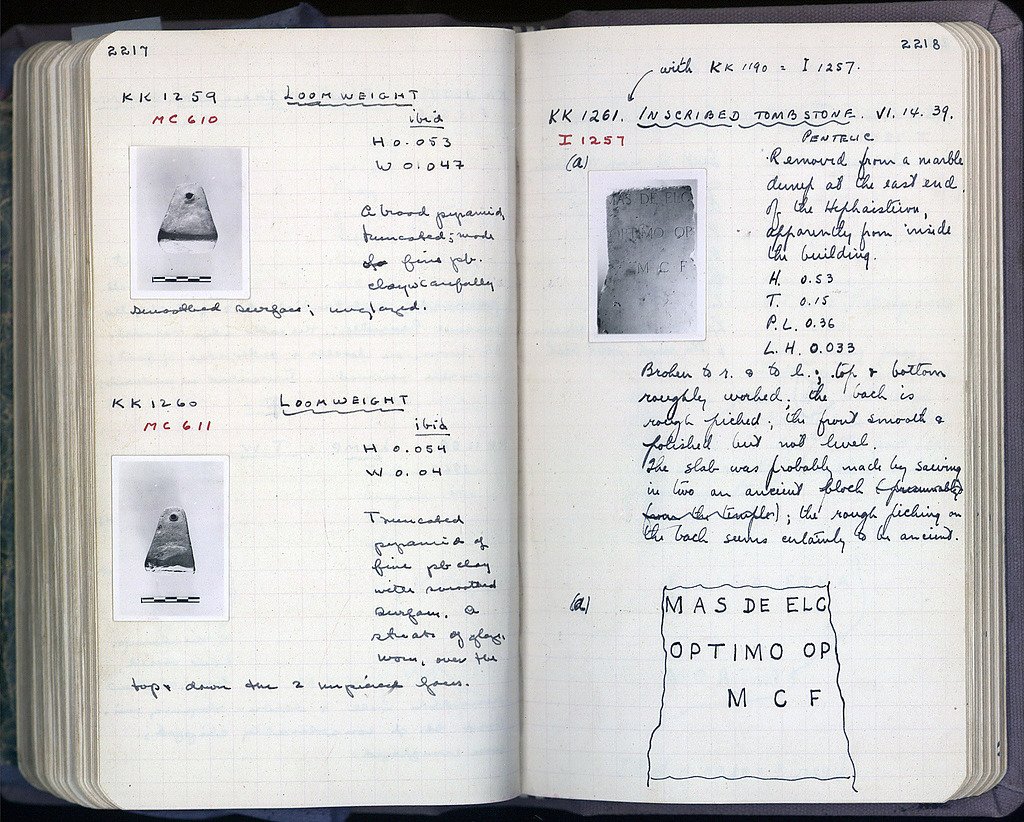 2217
KK 1259 LOOMWEIGHT
MC 610 ibid
H 0.053
W 0.047
A broad pyramid,
truncated; made
of fine pb.
clay w carefully
smoothed surface; unglazed.
KK 1260 LOOMWEIGHT
MC 611 ibid
H 0.054
W 0.04
Truncated
pyramid of
fine pb clay
with smoothed
surface. A
streak of glaze,
worn, over the
top & down the 2 unpierced faces.
2218
with KK 1190 = I 1257.
KK 1261. INSCRIBED TOMBSTONE. VI. 14. 39.
I 1257 PENTELIC
(a) Removed from a marble
dump at the east end
of the Hephaisteion,
apparently from inside
the building.
H. 0.53
T. 0.15
P.L. 0.36
L.H. 0.033
MAS DE ELC
OPTIMO OP
M C F
Broken to r. & to l.; top & bottom
roughly worked; the back is
rough picked; the front smooth &
polished but not level.
The slab was probably made by sawing
in two an ancient block (presumably
from the temple); the rough picking on
the back seems certainly to be ancient.
(a)
MAS DE ELC
OPTIMO OP
M C F